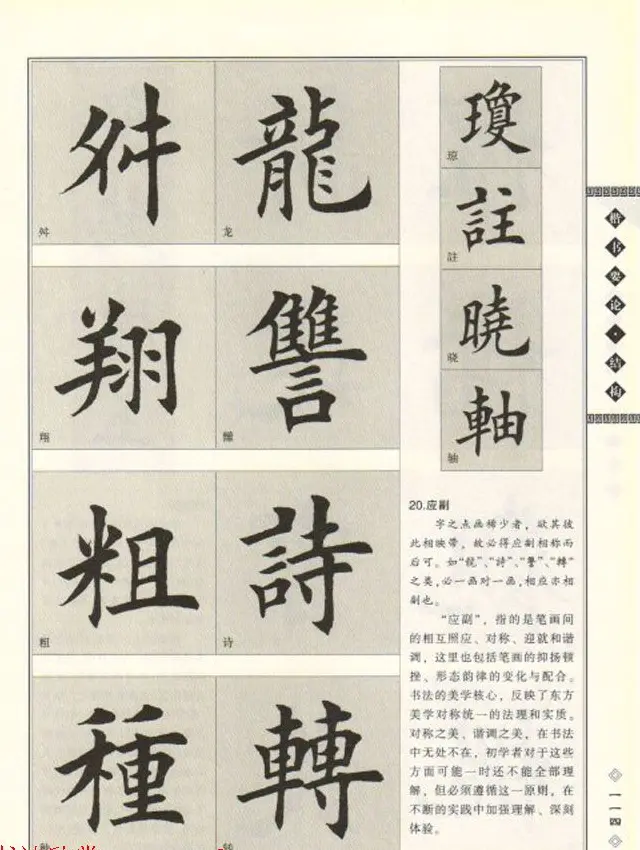 舛
龍
舛
龙
翔
讐
翔
粗
詩
粗
诗
種
轉
种
转
瓊
琼
註
註
曉
晓
軸
轴
20.应副
字之点画稀少者，欲其彼
此相映带，故必得应副相称而
后可。如“龍”、“詩”、“讐”、“轉”
之类，必一画对一画，相应亦相
副也。
“应副”，指的是笔画间
的相互照应、对称、迎就和谐
调，这里也包括笔画的抑扬顿
挫、形态韵律的变化与配合。
书法的美学核心，反映了东方
美学对称统一的法理和实质。
对称之美、谐调之美，在书法
中无处不在，初学者对于这些
方面可能一时还不能全部理
解，但必须遵循这一原则，在
不断的实践中加强理解、深刻
体验。
楷书要论·结构
一一四